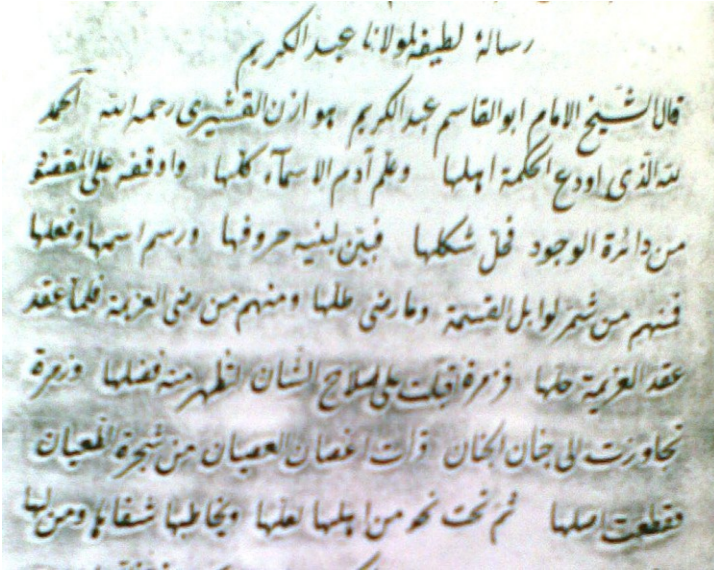 رسالة لطيفة لمولانا عبد الكريم
قال الشيخ الامام ابو القاسم عبد الكريم هوازن القشيرى رحمه الله الحمد
لله الذى اودع الحكمة اهلها وعلم آدم الاسمآء كلها واوقفه على المقصو
من دائرة الوجود فحل شكلها فبين لبنيه حروفها ورسم اسمها وفعلها
فمنهم من شمر لوابل القسمة وما رضى طلها ومنهم من رضى العزيمة فلما عقد
عقد العزيمة حلها وزمرة اقبلت على اصلاح الشان لتظهر منه فضلها وزمرة
تجاوزت الى جنان الجنان فرات اغصان العصيان من شجرة
فقطعت اصلها ثم نحت نحو من ابلها لعلها ويخاطبها شفاها ومن لها